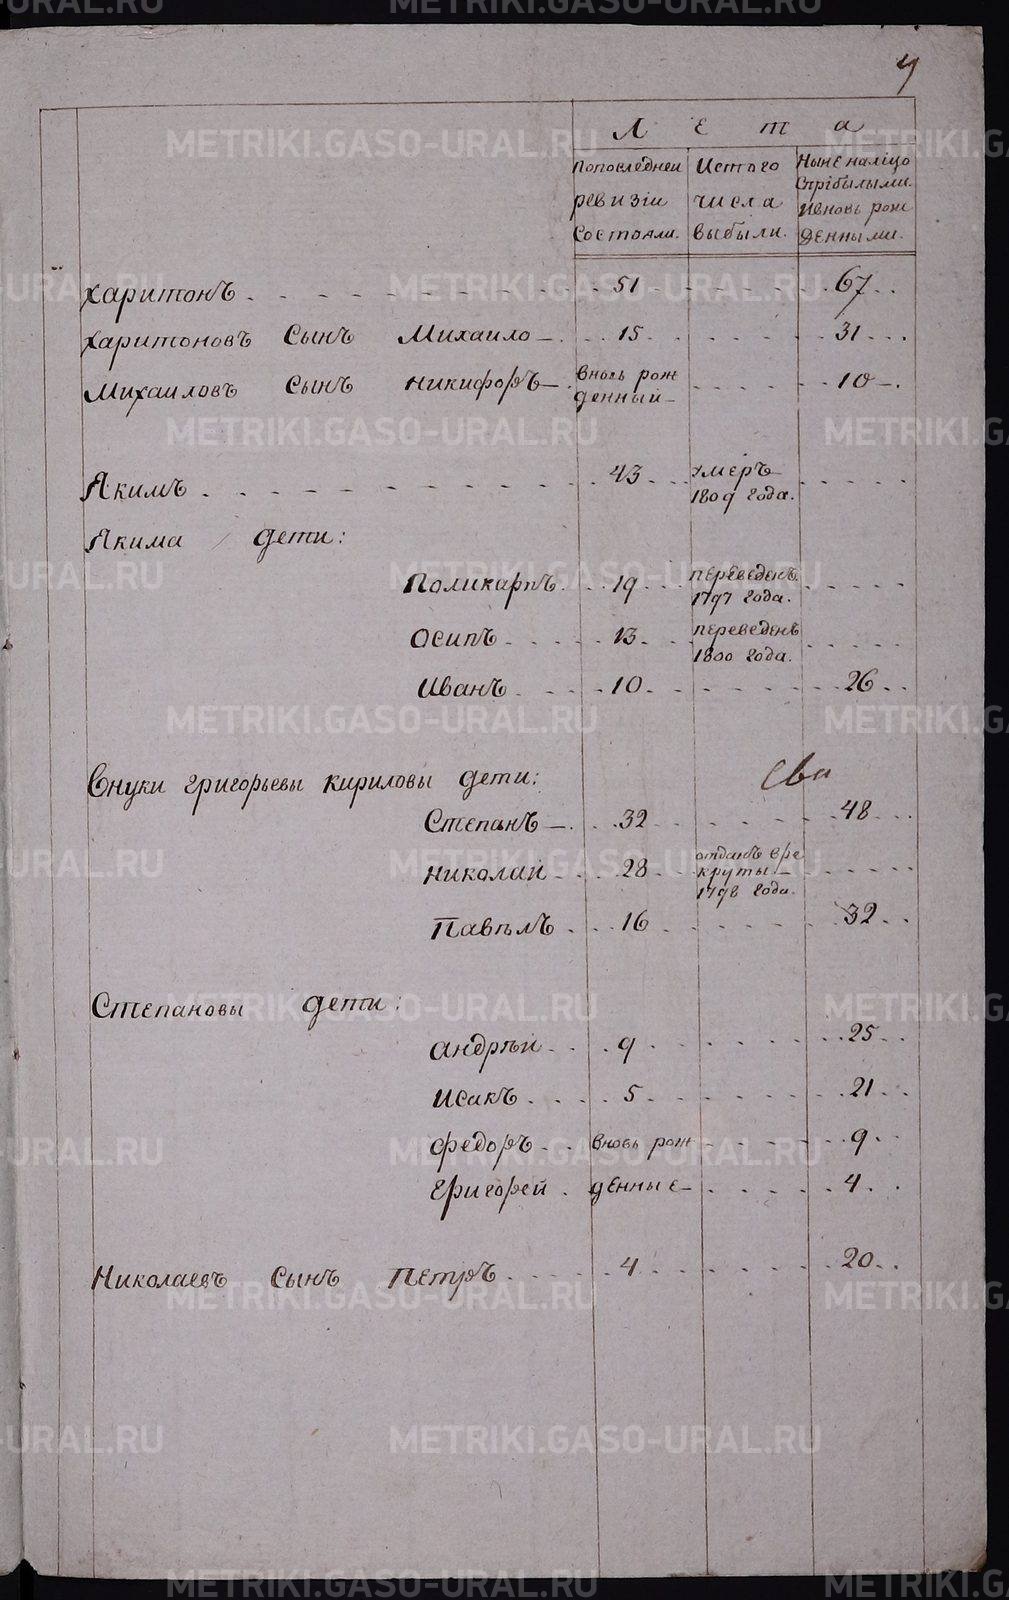 4
Лета
Попоследнеи ревизiи состояли.
Истого числа выбыли.
Ныне налiцо спрiбылыми ивновь рожденными.
Харитонъ 51 67
Харитоновъ сынъ Михаило 15 31
Михаиловъ сынъ Никифоръ вновь рожденный 10
Якимъ 43 умеръ 1809 года.
Якима дети:
Поликарпъ 19 переведенъ 1797 года.
Осипъ 13 переведенъ 1800 года.
Иванъ 10 26
Внуки григорьевы кириловы дети:
Степанъ 32 48
Николай 28 отданъ врекруты 1798 года.
Павѣлъ 16 32
Степановы дети:
андрѣй 9 25
Исакъ 5 21
Федоръ вновь рож 9
Григорей денные 4
Николаевъ сынъ Петръ 4 20
METRIKI.GASO-URAL.RU